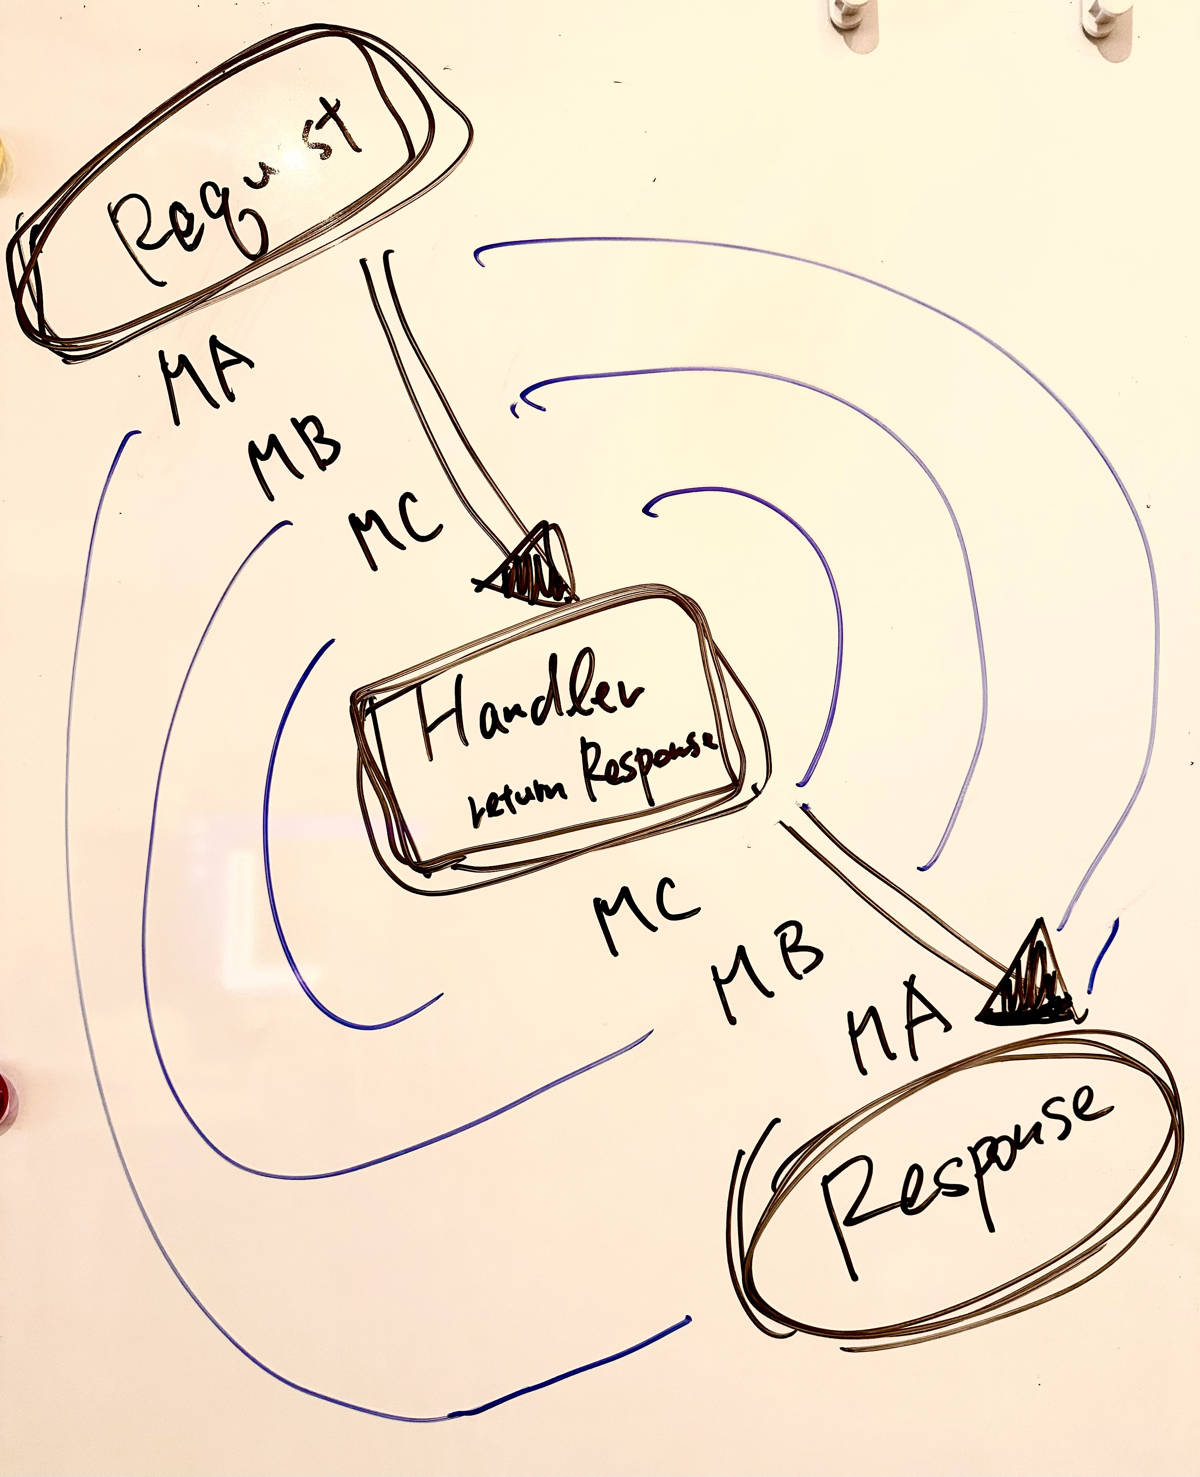 Request
MA
MB
MC
Handler
return Response
MC
MB
MA
Response